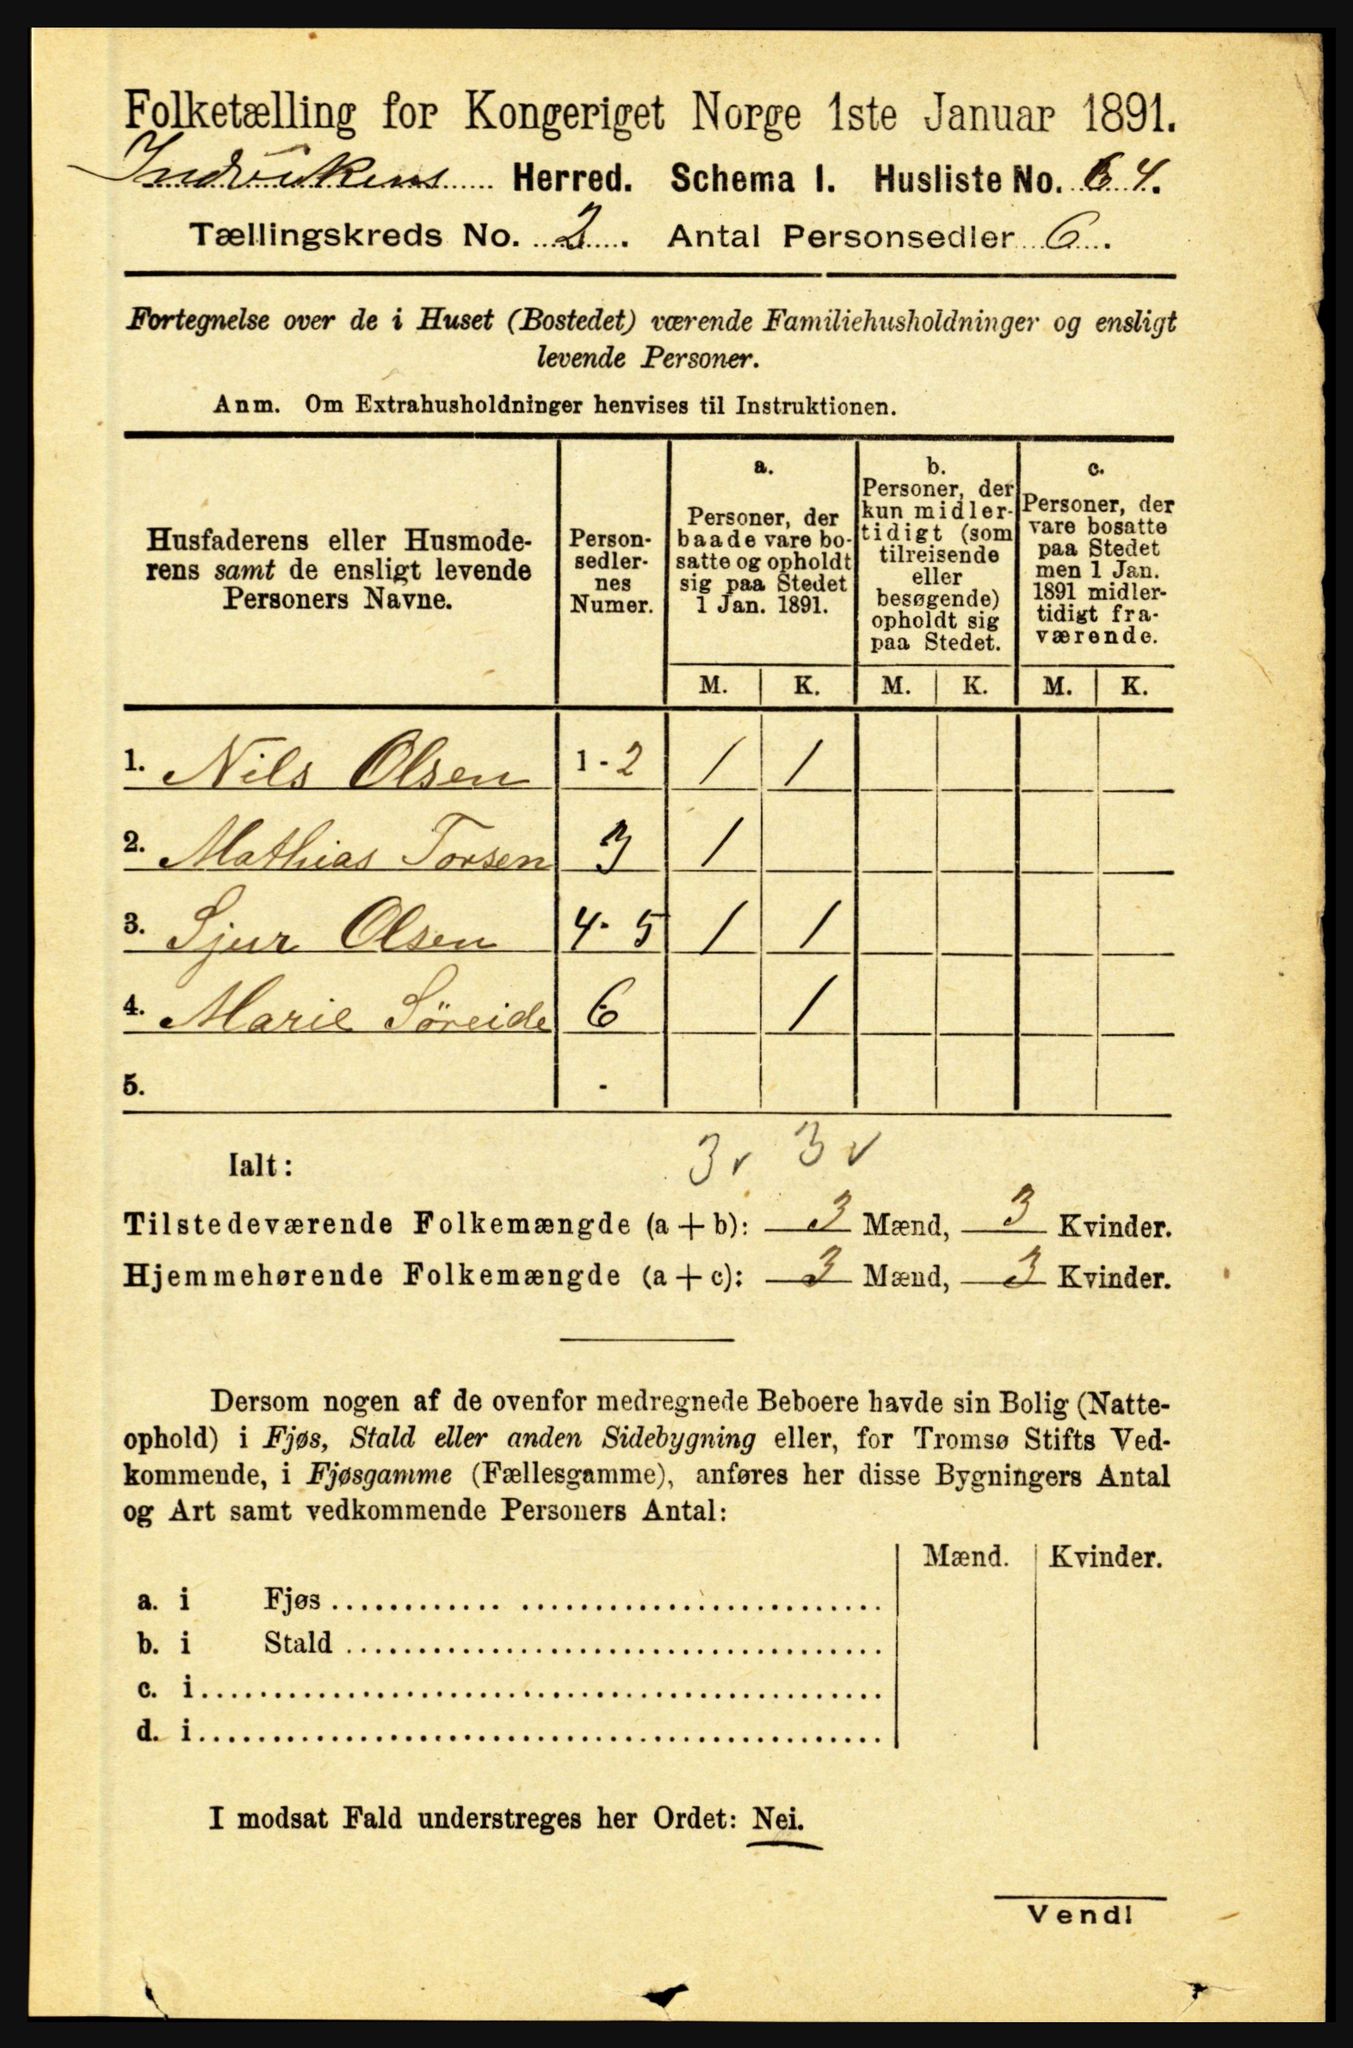 Folketælling for Kongeriget Norge 1ste Januar 1891.
Indvikens Herred. Schema I. Husliste No. 64.
Tællingskreds No. 2. Antal Personsedler 6.
Fortegnelse over de i Huset (Bostedet) værende Familiehusholdninger og ensligt
levende Personer.
Anm. Om Extrahusholdninger henvises til Instruktionen.
Husfaderens eller Husmode-
rens samt de ensligt levende
Personers Navne.
Person-
sedler-
nes
Numer.
a.
Personer, der
baade vare bo-
satte og opholdt
sig paa Stedet
1 Jan. 1891.
b.
Personer, der
kun midler-
tidigt (som
tilreisende
eller
besøgende)
opholdt sig
paa Stedet.
c.
Personer, der
vare bosatte
paa Stedet
men 1 Jan.
1891 midler-
tidigt fra-
værende.
M. K. M. K. M. K.
1. Nils Olsen 1 - 2 1 1
2. Mathias Torsen 3 1
3. Sjur Olsen 4 - 5 1 1
4. Marie Söreide 6 1
5. -
Ialt: 3 v 3 v
Tilstedeværende Folkemængde (a + b): 3 Mænd, 3 Kvinder.
Hjemmehørende Folkemængde (a + c): 3 Mænd, 3 Kvinder.
Dersom nogen af de ovenfor medregnede Beboere havde sin Bolig (Natte-
ophold) i Fjøs, Stald eller anden Sidebygning eller, for Tromsø Stifts Ved-
kommende, i Fjøsgamme (Fællesgamme), anføres her disse Bygningers Antal
og Art samt vedkommende Personers Antal:
Mænd. Kvinder.
a. i Fjøs
b. i Stald
c. i
d. i
I modsat Fald understreges her Ordet: Nei.
Vend!